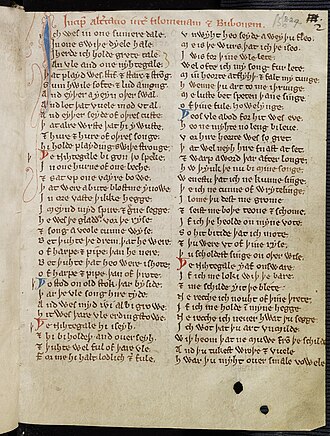 Incipit Altercacio inter filomenam & Bubonem.
Ich wes in one sumere dale
In one swiþe dyele hale
Iherde ich holde grete tale
An vle and one nyhtegale
Þat playd wes stif & starc & strong
Sum hwile softe & lud among
And eyþer ayeyn oþer swal
And let þat vuele mod vt al
And eyþer seyde of oþres custe
Þat alre wrste þat hi ywuste
& hure & hure of oþres songe
Hi holde playding swiþe stronge
Þe Nihtegale bigon þo speke
In one hurne of one beche
& sat vp one vayre bowe
Þat were abute blostme ynowe
In ore vaste þikke hegge
Imeynd myd spire & grene segge
He wes þe gladur vor þe ryse
& song a veole cunne wyse
Bet þuhte þe drem þat he were
Of harpe & pipe þan he nere
Bet þuhte þat heo were ishote
Of harpe & pipe þan of þrote
Þo stod on old stok þar byside
Þar þe vle song hire tyde
And wes myd ivi al bigrowe
Hit wes þare vle erdingstowe
Þe Nihtegale hi iseyh
& hi biholdeþ and ouerseyh
& þuhte wel ful of þare vle
For me hi halt lodlich & fule
Vnwyht heo seyde awey þu fleo
Me is þe wrs þat ich þe iseo
Iwis for þine wle lete
Wel ofte ich my song furlete
Min heorte atflyhþ & falt my tunge
Hwenne þu art to me iþrunge
Me luste bet speten þane singe
Of þine fule howelynge
Þeos vle abod for hit wes eve
Heo ne myhte no leng bileve
Vor hire heorte wes so gret
Þat wel neyh hire fnast atset
& warp a word þar after longe
Hw þynk þe nu bi mine songe
Wenestu þat ich ne kunne singe
Þe ich ne cunne of wrytelinge
Ilome þu dest me grome
& seist me boþe teone & schome
If ich þe heolde on myne vote
So hit bitide þat ich mote
& þu were vt of þine ryse
Þu scholdest singe on oþer wise
Þe Nihtegale yaf onsware
If ich me loki wiþ þe bare
& me schilde wiþ þe blete
Ne recche ich nouht of þine þrete
If ich me holde in myne hegge
Ne recche ich neuer hwat þu segge
Ich wot þat þu art vnmilde
Wiþ heom þat ne muwe fro þe schilde
And þu tukest wroþe & vuele
Hwar þu myht ouer smale vowele